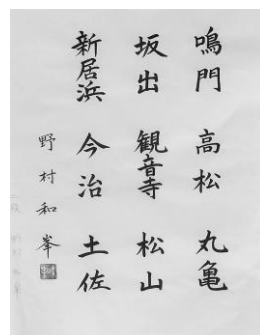 鳴門 高松 丸亀
坂出 観音寺 松山
新居浜 今治 土佐
野村和峯